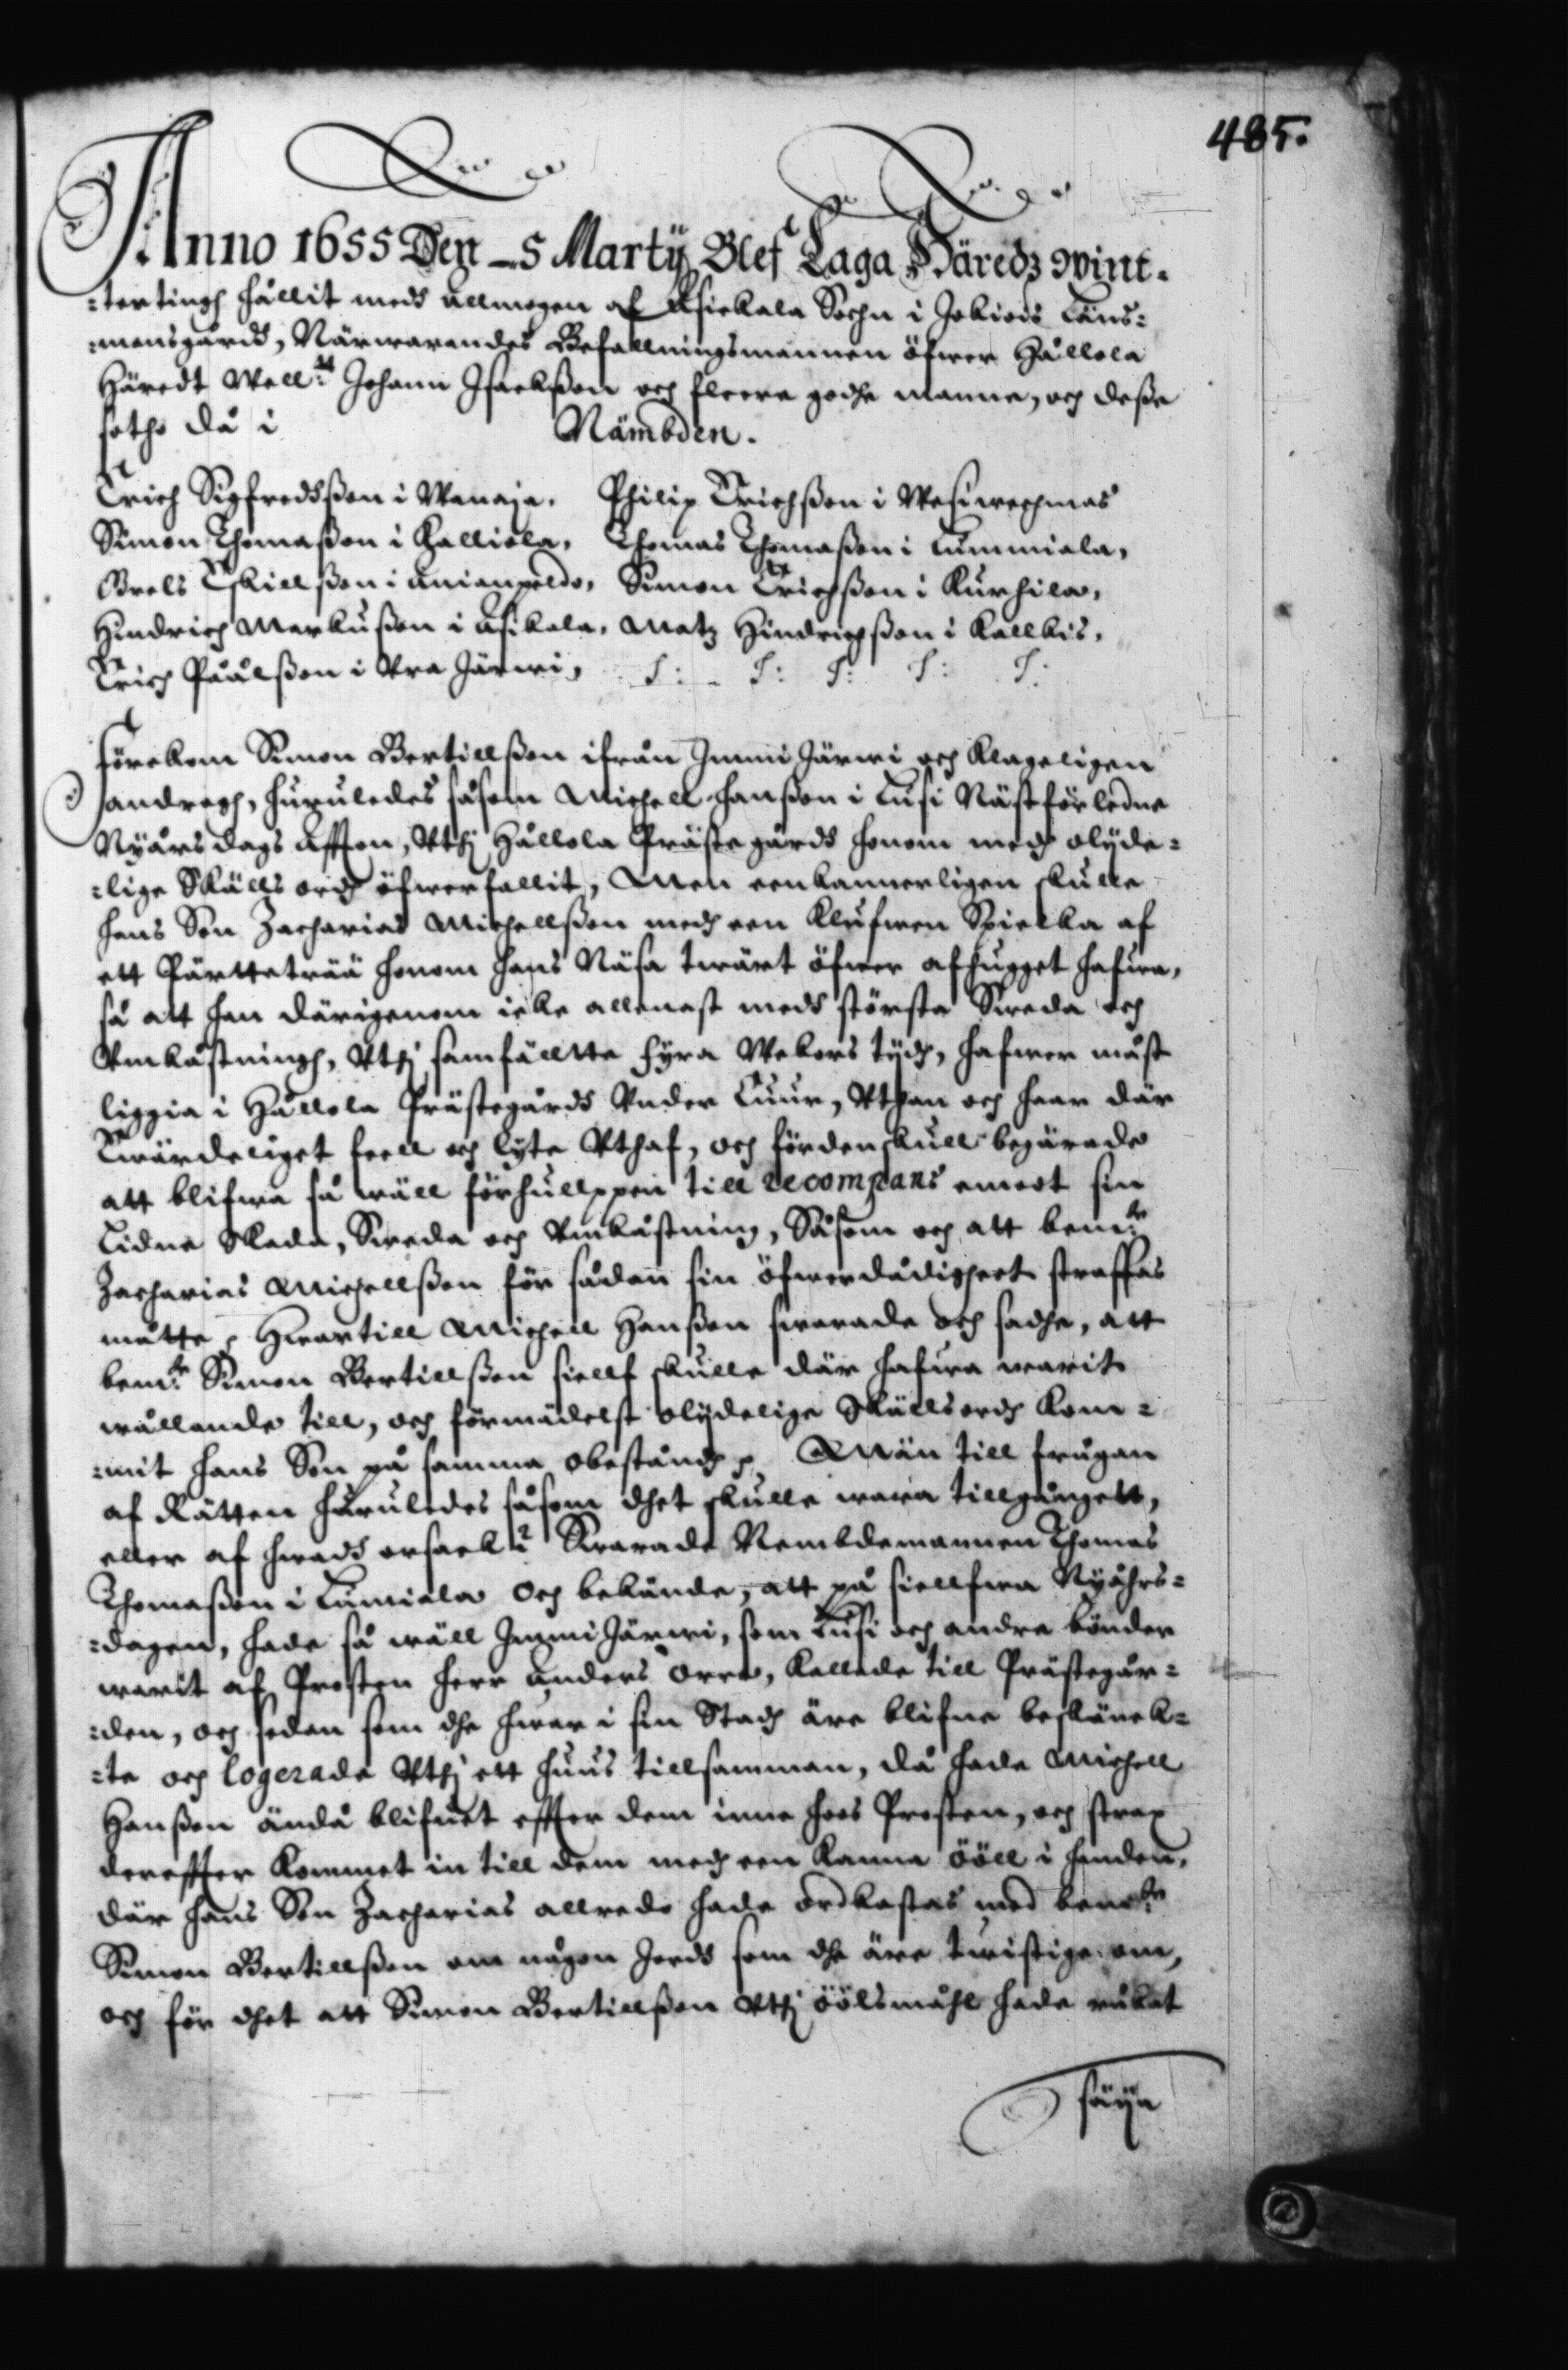 485.
Anno 1655 Den _5 Martÿ Blef Laga Häredz Wint-
:tertingh hållit medh allmogen af Asickala Sochn i Jokiois Läns:
:mansgårdh, Närwarandes Befallningsmannen öfwer Hållola
Häredt Well:tt Johann Isacksson och fleere godhe männe, och desse
sotho då i Nämbden.
Erich Sigfredsson i Wanaja. Philip Erichsson i Wesiwechmas
Simon Thomasson i Kalliola, Thomas Thomasson i Lummiala,
Brels Eskillsson i Anianpeldo, Simon Erichsson i Kurhila,
Hindrich Markusson i Asikala, Matz Hindrichsson i Kallkis,
Erich Påålsson i Vra Järwi, S: _ S: S: S: S:
Förekom Simon Bertillsson ifrån Immi Järwi och klageligen
androgh, huruledes såsom Michell Hansson i Lusi Nästförledne
Nyårsdags Afton, Vthj Hållola Prästegårdh honom medh olijde:
:lige Skälls ordh öfwerfallit, Men eenkannerligen skulle
hans Son Zacharias Michellsson medh een klufwen Spielka af
ett Pärtteträä honom hans Näsa twärt öfwer afhugget hafwa,
så att han därigenom icke allenast medh största Sweda och
Omkåstningh, Vthj samfällte fyra Wekors tydh, hafwer måst
liggia i Hållola Prästegårdh Vnder Cuur, Vthan och haar där
Ewärdeliget feell och lyte Vthaf, och fördenskull begärade
att blifwa så wäll förhullppen till recompans emoot sin
Lidne Skada, Sweda och Omkåstning, Såsom och att bem:te
Zacharias Michellsson för sådan sin öfwerdådigheet straffas
måtte, Hwartill Michell Hansson swarade och sadhe, att
bem:te Simon Bertillsson siellf skulle där hafwa warit
wållande till, och förmädelst olijdelige Skällsordh kom:
:mit hans Son på samma obeståndh, Män till frågan
af Rätten huruledes såsom dhet skulle wara tillgånget,
eller af hwadh orsack? Swarade Nembdemannen Thomas
Thomasson i Lumiala och bekände, att på siellfwa Nyåhrs:
:dagen, hade så wäll Immi Järwi, som Lusi och andra bönder
warit af Prosten herr Anders Orre, kallade till Prästegår:
:den, och sedan som dhe hwar i sin Stadh äre blifne beskänck:
:te och logerade Vthj ett huus tillsamman, då hade Michell
Hansson ändå blifwet effter dem inne hoos Prosten, och strax
dereffter kommet in till dem medh een kanna ööll i handen,
där hans Son Zacharias allredo hade ordkastas med bem:te
Simon Bertillsson om någon Jordh som dhe äre twistige om,
och för dhet att Simon Bertillsson Vthj öölsmåhl hade råkat
säija